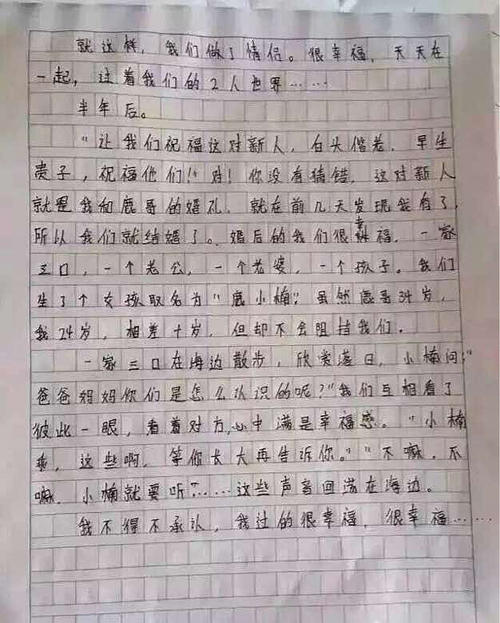 就这样，我们做了情侣。很幸福，天天在
一起，过着我们的2人世界……
半年后。
“让我们祝福这对新人，白头偕老，早生
贵子，祝福他们！”对！你没有猜错，这对新人
就是我和鹿哥的婚礼，就在前几天发现我有了，
所以我们就结婚了。婚后的我们很幸福，一家
三口，一个老公，一个老婆，一个孩子。我们
生了个女孩取名为“鹿小楠”虽然鹿哥34岁，
我24岁，相差十岁，但却不会阻挡我们。
一家三口在海边散步，欣赏落日，小楠问：“
爸爸妈妈你们是怎么认识的呢？”我们互相看了
彼此一眼，看着对方，心中满是幸福感。“小楠
乖，这些啊，等你长大再告诉你。”“不嘛，不
嘛，小楠就要听”……这些声音回荡在海边。
我不得不承认，我过的很幸福，很幸福……